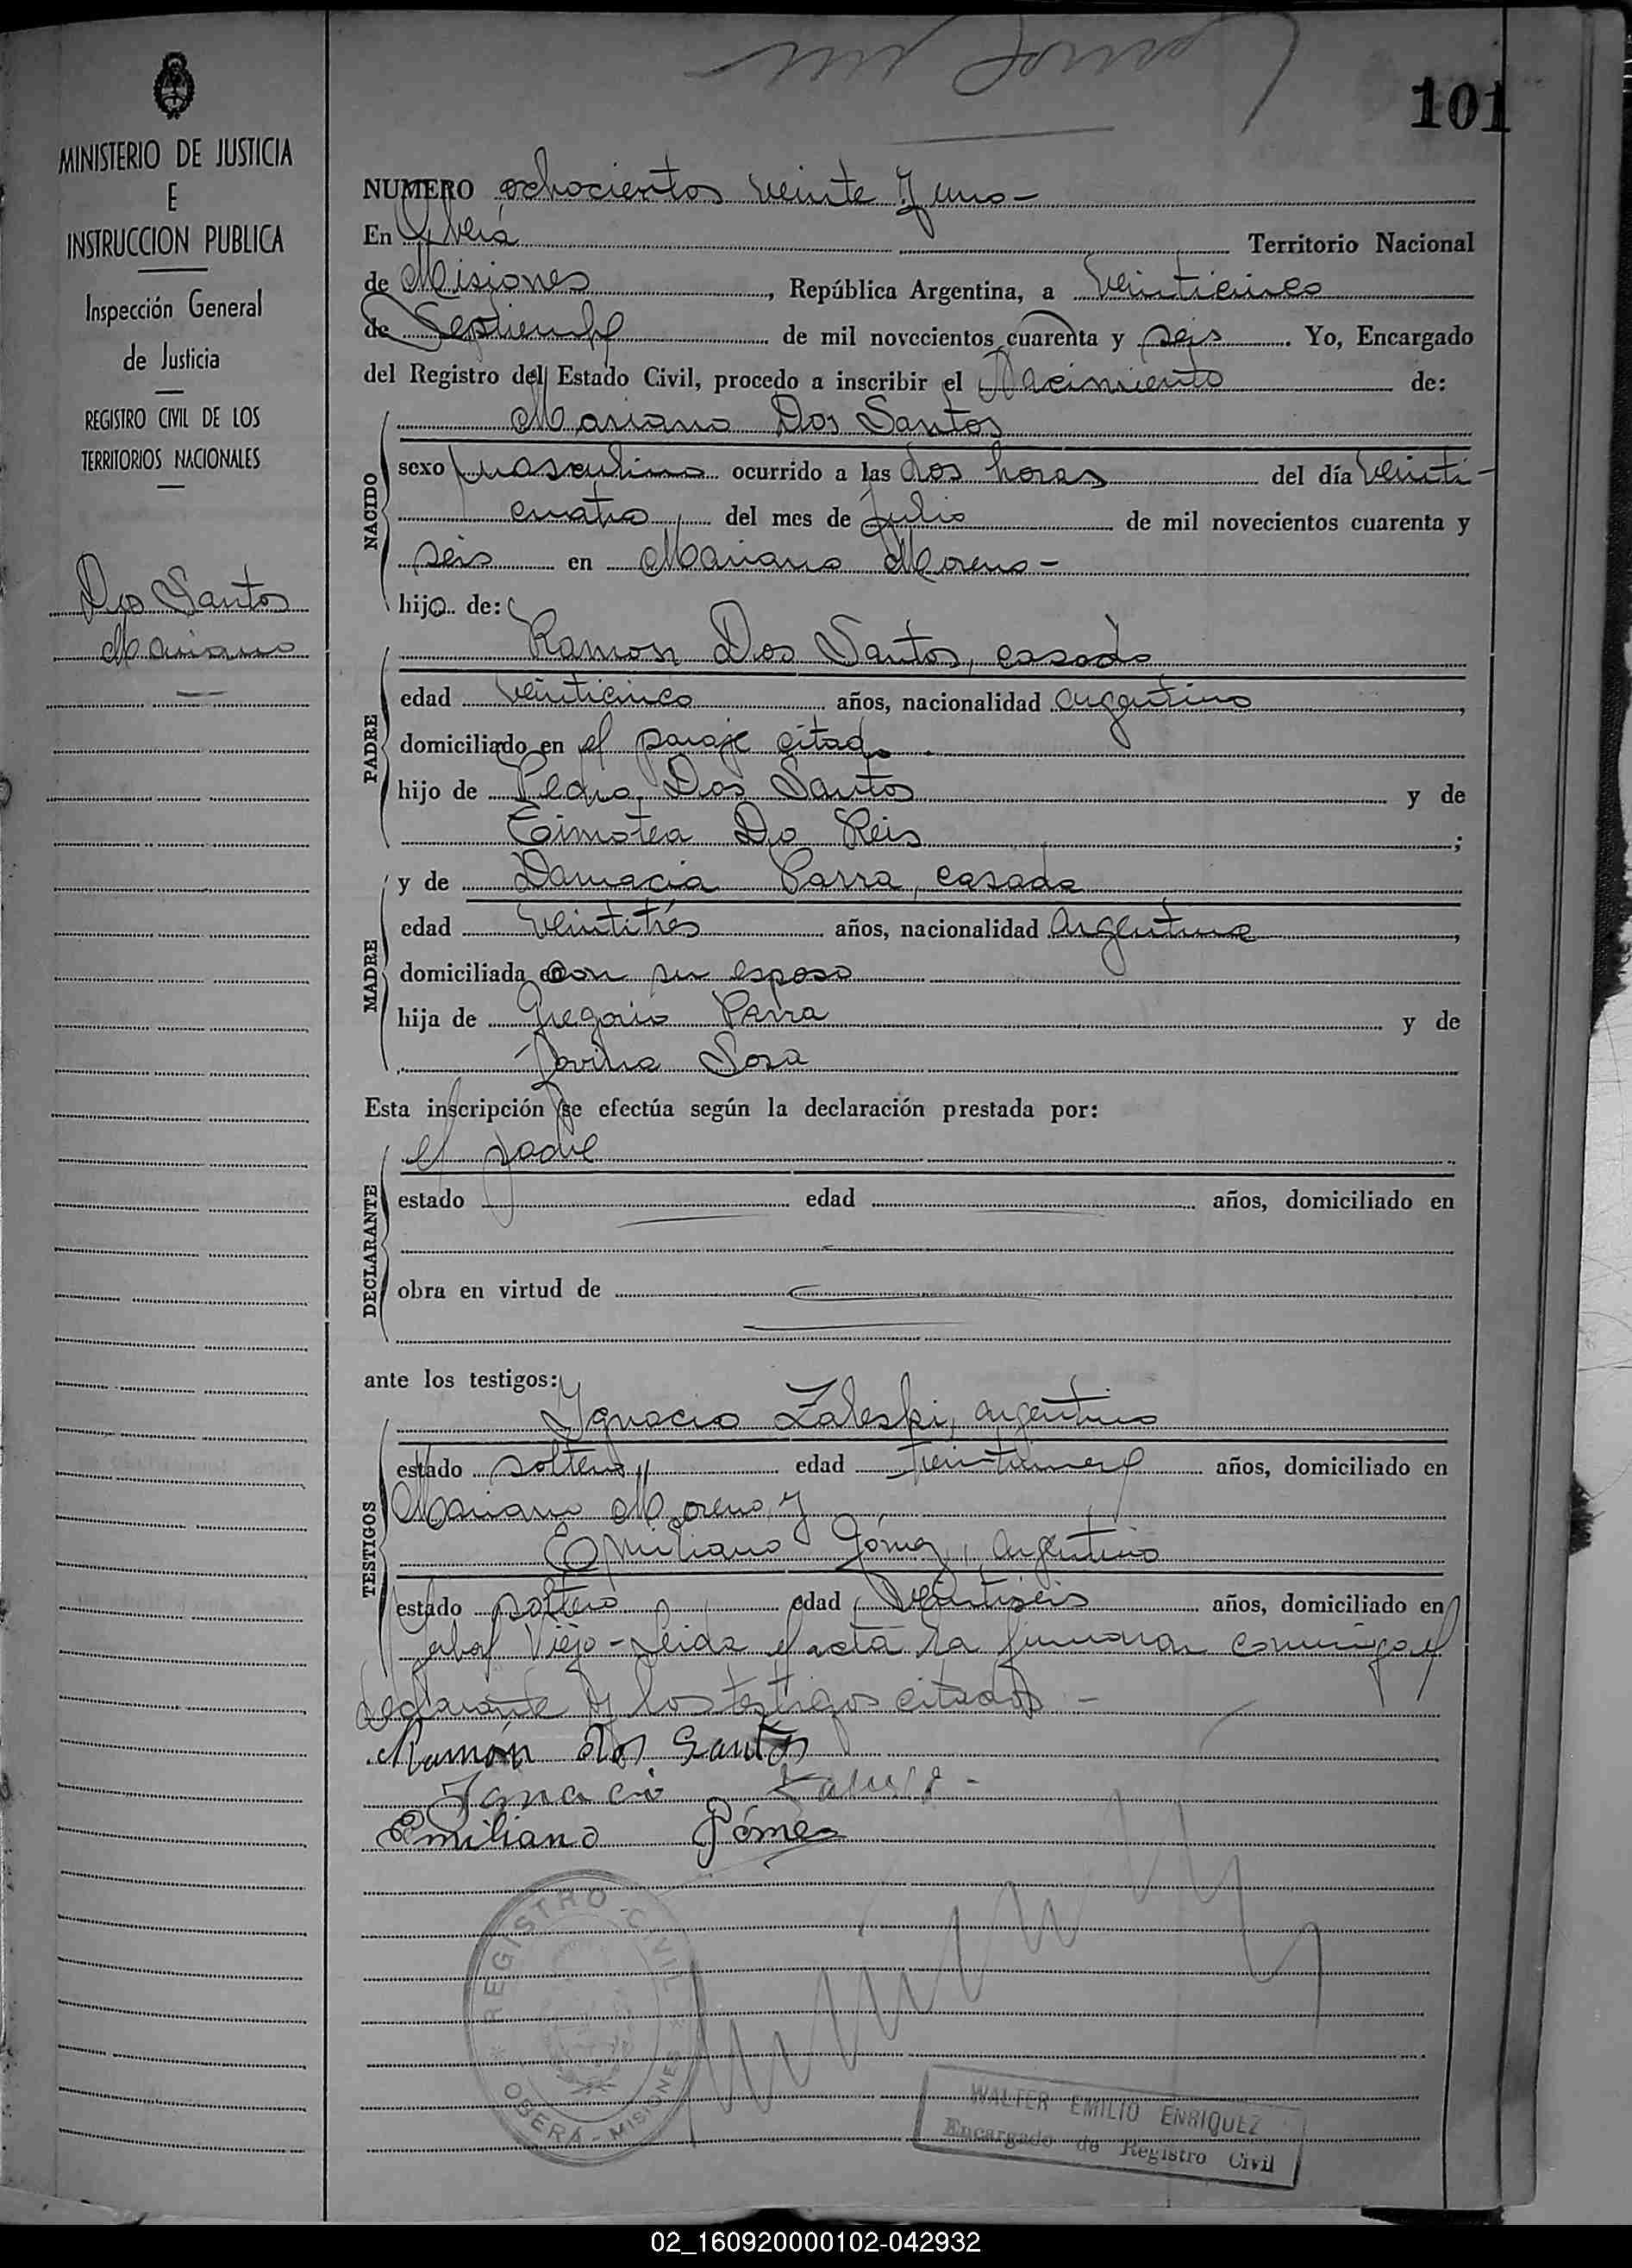 101
MINISTERIO DE JUSTICIA
E
INSTRUCCION PUBLICA
Inspección General
de Justicia
REGISTRO CIVIL DE LOS
TERRITORIOS NACIONALES
Dos Santos
Mariano
NUMERO ochocientos veinte y uno-
En Oberá Territorio Nacional
de Misiones, República Argentina, a veinticinco
de Septiembre de mil novecientos cuarenta y seis. Yo, Encargado
del Registro del Estado Civil, procedo a inscribir el Nacimiento de:
NACIDO
Mariano Dos Santos
sexo masculino ocurrido a las dos horas del día veinti-
cuatro del mes de Julio de mil novecientos cuarenta y
seis en Mariano Moreno-
hijo de:
PADRE
Ramon Dos Santos, casado
edad veinticinco años, nacionalidad argentino,
domiciliado en el paraje citado.
hijo de Pedro Dos Santos y de
Timotea Do Reis;
MADRE
y de Damacia Parra, casada
edad veintitrés años, nacionalidad argentina,
domiciliada con su esposo
hija de Gregorio Parra y de
Jovina Sosa
Esta inscripción se efectúa según la declaración prestada por:
DECLARANTE
el padre
estado edad años, domiciliado en
obra en virtud de
ante los testigos:
TESTIGOS
Ygnacio Zaleski, argentino
estado soltero, edad treintinueve años, domiciliado en
Mariano Moreno, y
Emiliano Gómez, argentino
estado soltero edad veintiseis años, domiciliado en
Yabal Viejo-Leida el acta la firmaron conmigo el
declarante y los testigos citados-
Ramón Dos Santos
Ignacio
Emiliano Gómez
REGISTRO CIVIL
OBERA-MISIONES
WALTER EMILIO ENRIQUEZ
Encargado de Registro Civil
02_160920000102-042932